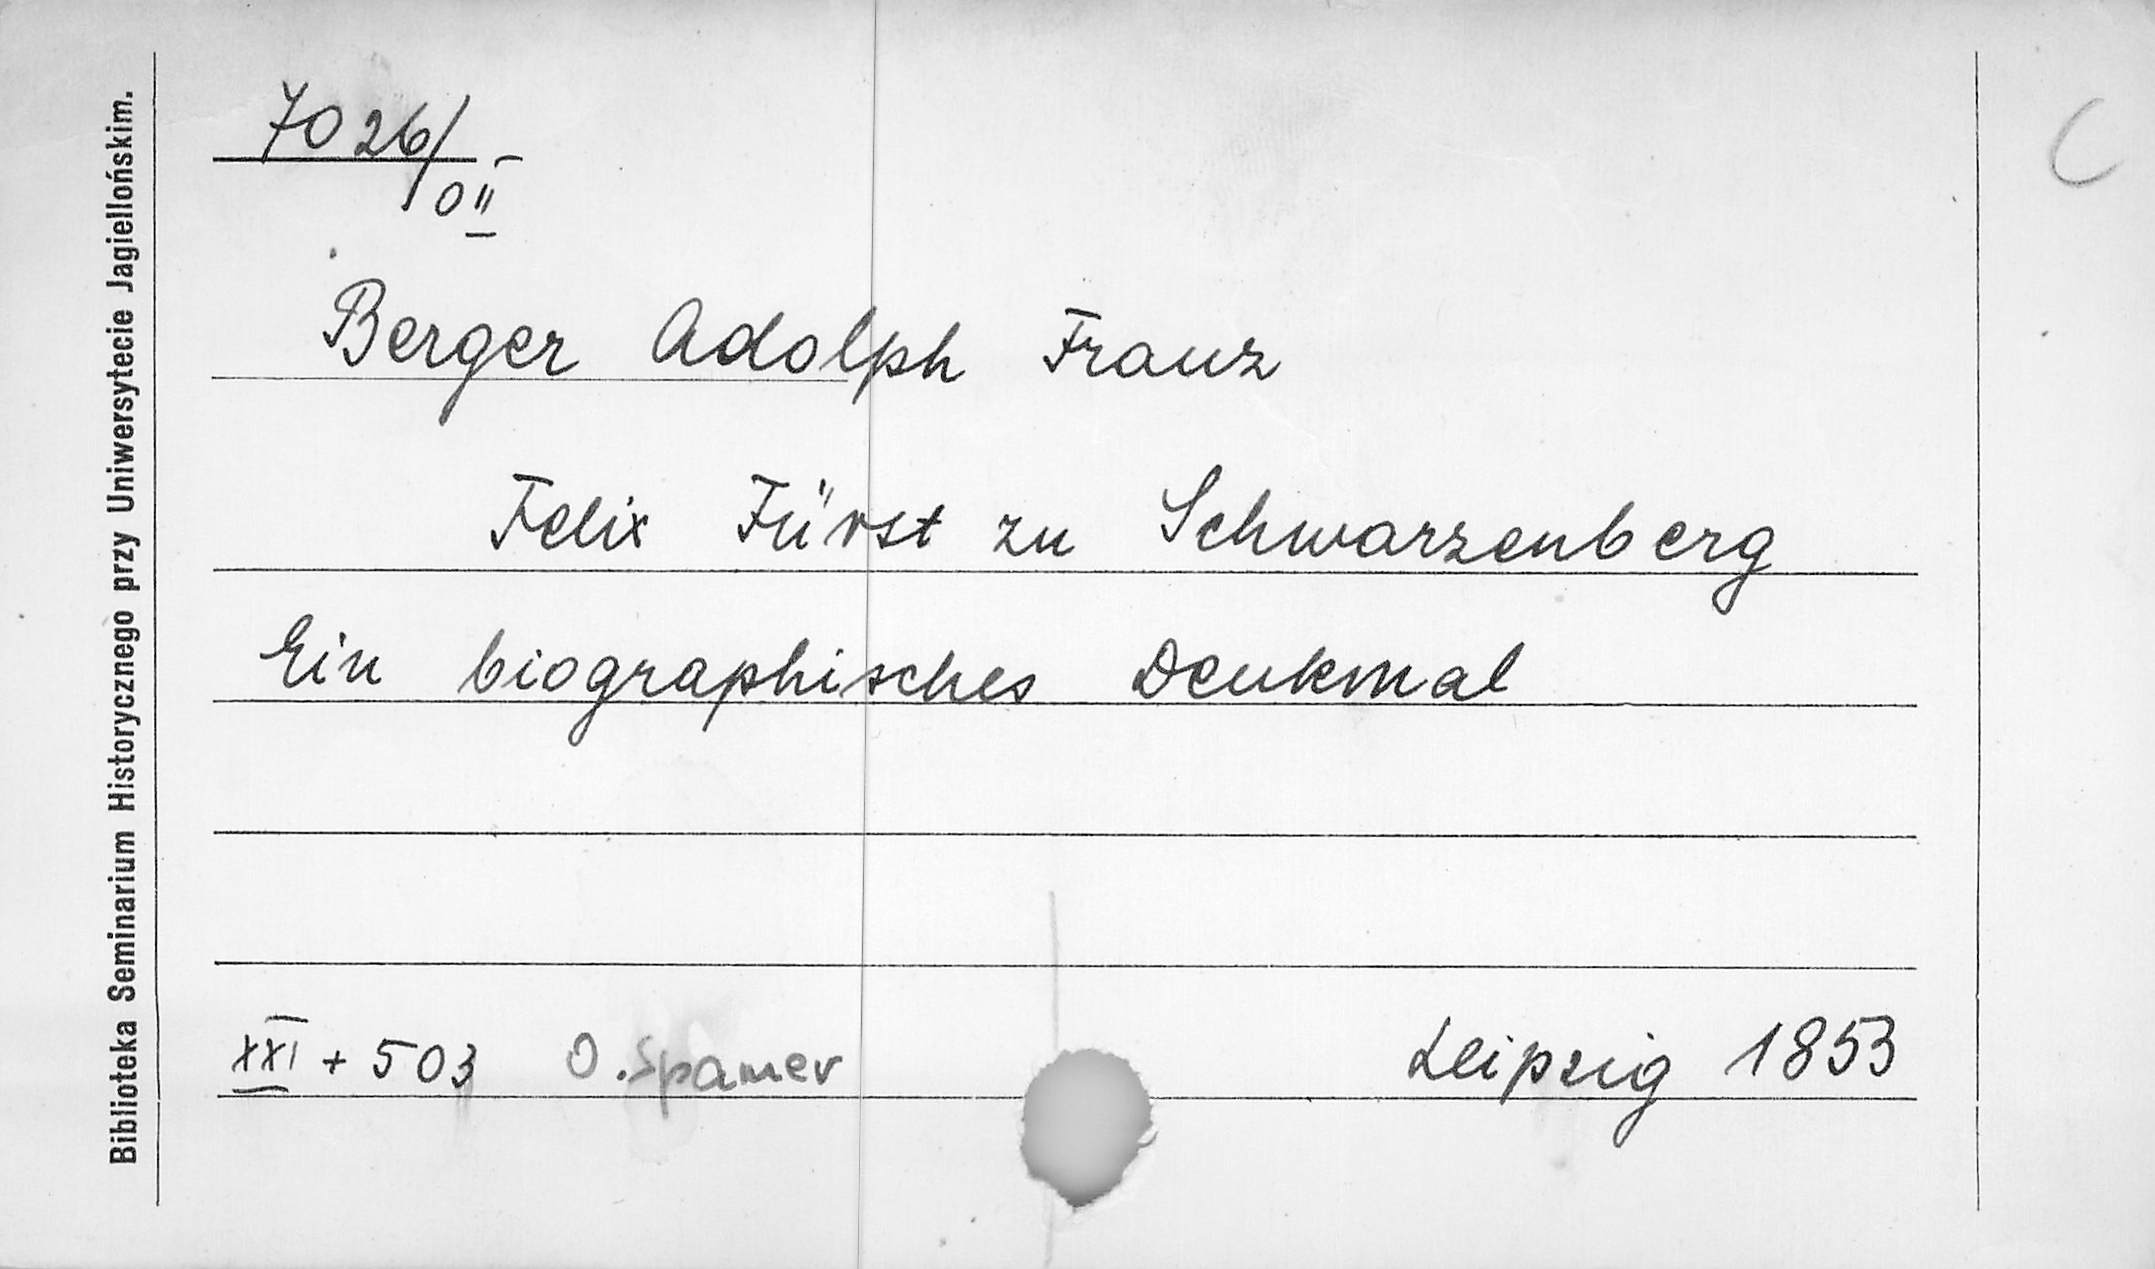 7026/
0 II
C
Berger Adolph Franz
Felix Fürst zu Schwarzenberg
Ein biographisches Denkmal
XXI + 503 O. Spamer Leipzig 1853
Biblioteka Seminarium Historycznego przy Uniwersytecie Jagiellońskim.